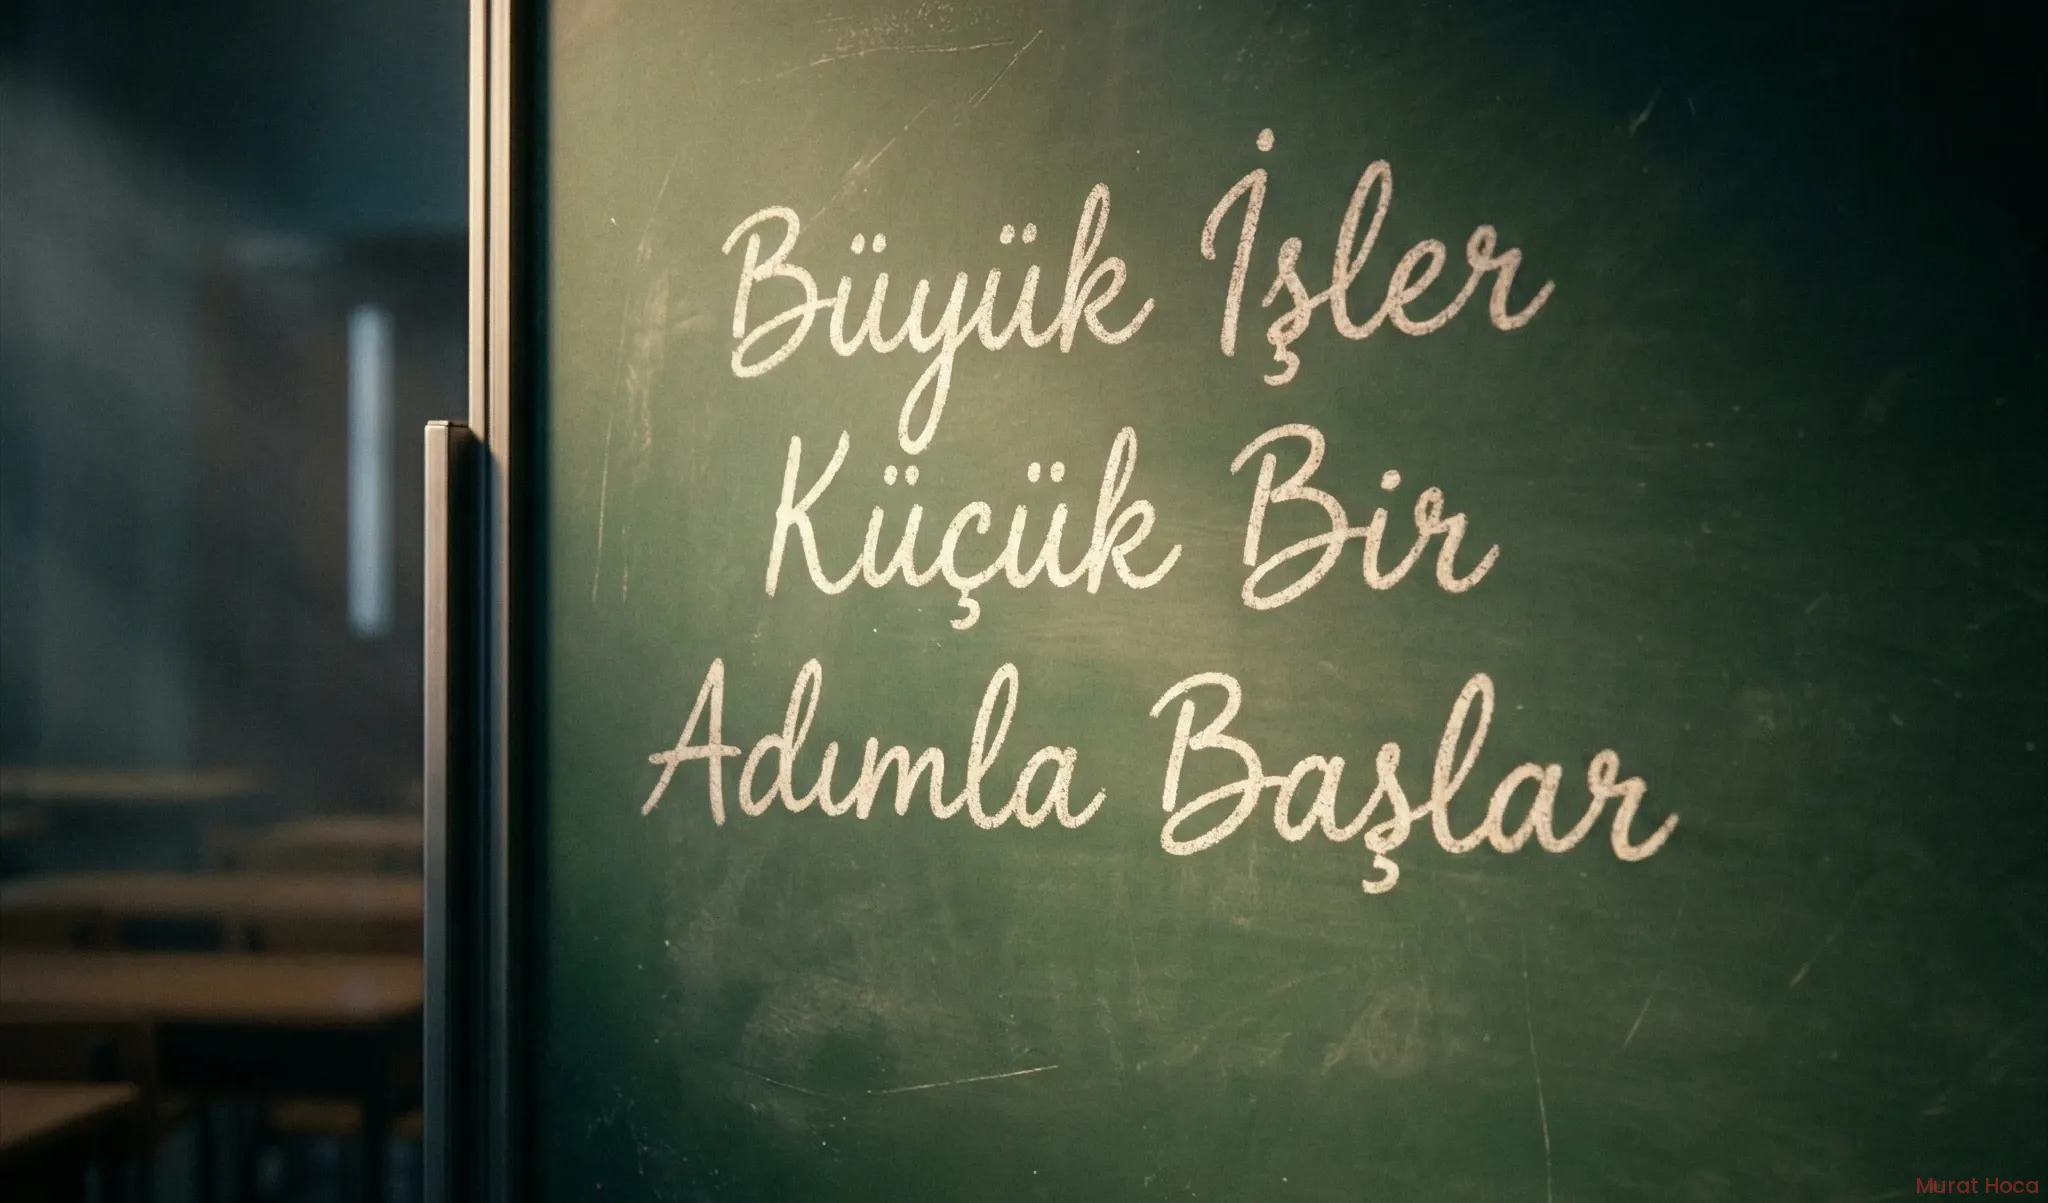 Büyük İşler
Küçük Bir
Adımla Başlar
Murat Hoca